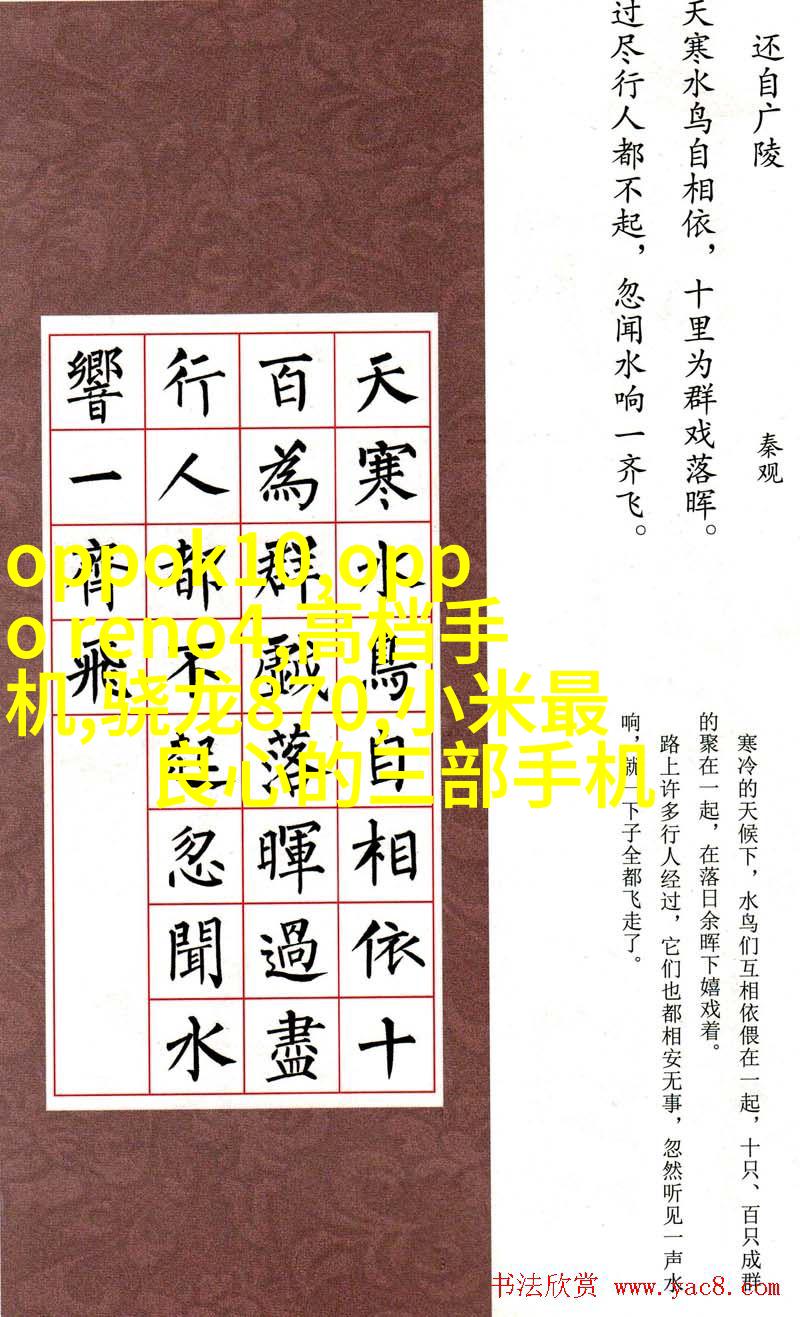 还自广陵
秦观
天寒水鸟自相依，十里为群戏落晖。
过尽行人都不起，忽闻水响一齐飞。
寒冷的天候下，水鸟们互相依偎在一起，十只、百只成群
的聚在一起，在落日余晖下嬉戏着。
路上许多行人经过，它们也都相安无事，忽然听见一声水
响，就下子全都飞走了。
天寒水鳥自相依十
百為群戲落暉過盡
行人都不起忽聞水
響一齊飛
oppok10,opp
o reno4,高档手
机,骁龙870,小米最
良心的三部手机
书法欣赏 www.yac8.com